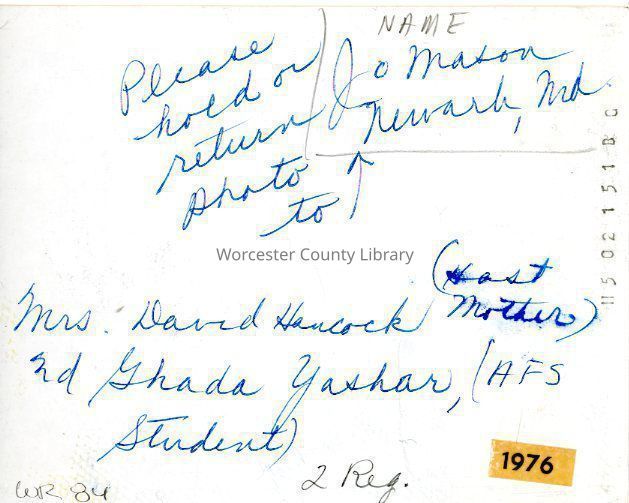 NAME
Please
hold or
return
photo
to
Jo Mason
Newark, Md.
Worcester County Library
(Host
Mother)
Mrs. David Hancock
nd Ghada Yashar, (AFS
Student)
1976
2 Reg.
WR 84